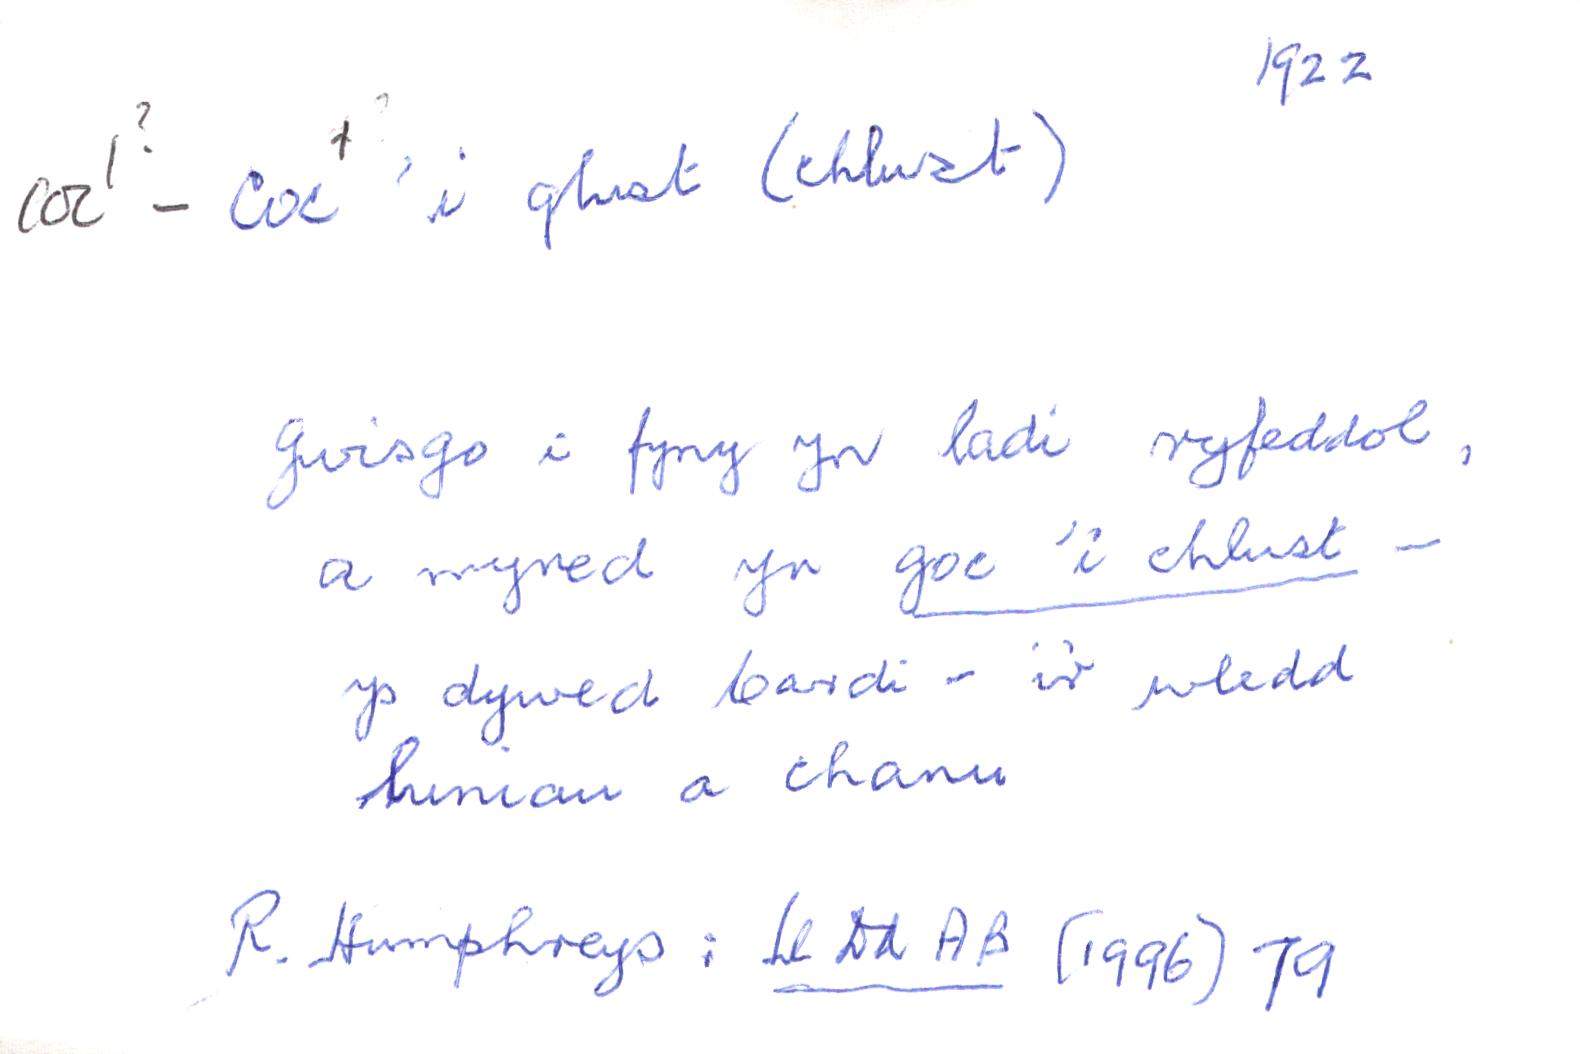 1922
coc¹? - Coc⁺? 'i ghust (chlust)
Gwisgo i fyny yn ladi ryfeddol,
a myned yn goc 'i chlust -
ys dywed Cardi - i'r wledd
huniau a chanu
R. Humphreys: Ll Dd A B (1996) 79